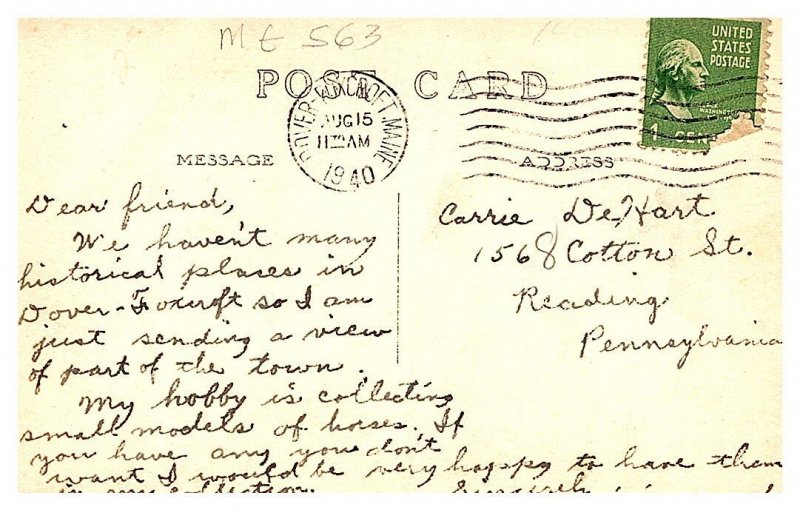 ME 563
UNITED
STATES
POSTAGE
WASHINGTON
1 CEN
POST CARD
DOVER-FOXCROFT, MAINE
AUG 15
11 AM
1940
MESSAGE
ADDRESS
Dear friend,
We haven't many
historical places in
Dover-Foxcroft so I am
just sending a view
of part of the town.
My hobby is collecting
small models of horses. If
you have any you don't
want I would be very happy to have them
in my collection.
Sincerely
Carrie DeHart
1568 Cotton St.
Reading
Pennsylvania